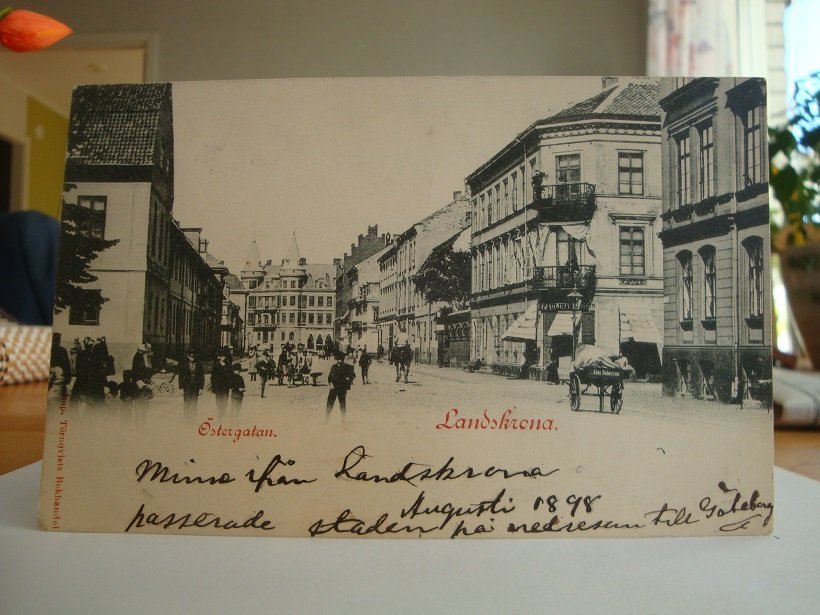 Östergatan.
Landskrona.
Imp. Törnqvists Bokhandel
Minne ifrån Landskrona
Augusti 1898
passerade staden på nedresan till Göteborg